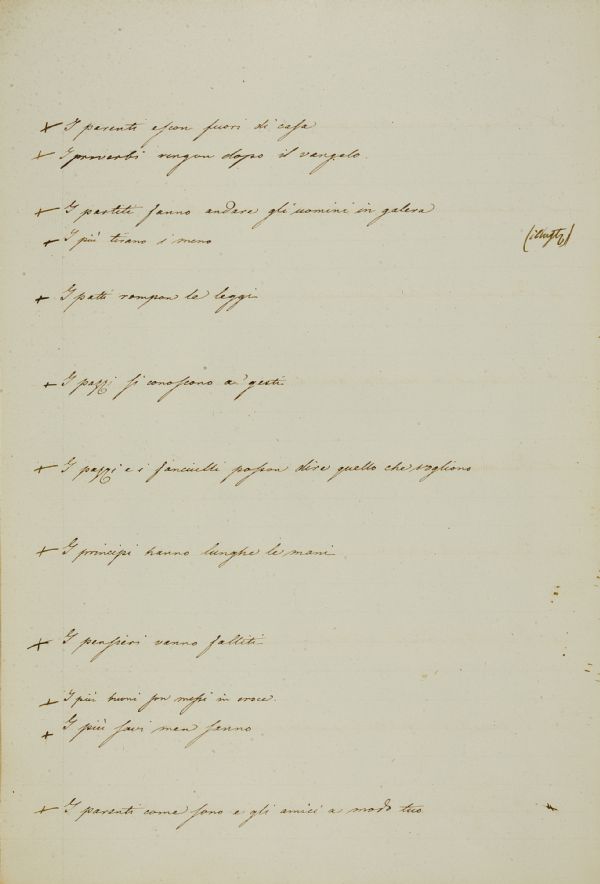 + I parenti escon fuori di casa
+ I proverbi vengon dopo il vangelo.
+ I partiti fanno andare gli uomini in galera
+ I più tirano i meno
+ I patti rompon le leggi
+ I pazzi si conoscono a' gesti
+ I pazzi e i fanciulli posson dire quello che vogliono
+ I principi hanno lunghe le mani
+ I pensieri vanno falliti
+ I più buoni son messi in croce.
+ I più savi men sanno
+ I parenti come sono e gli amici a modo tuo